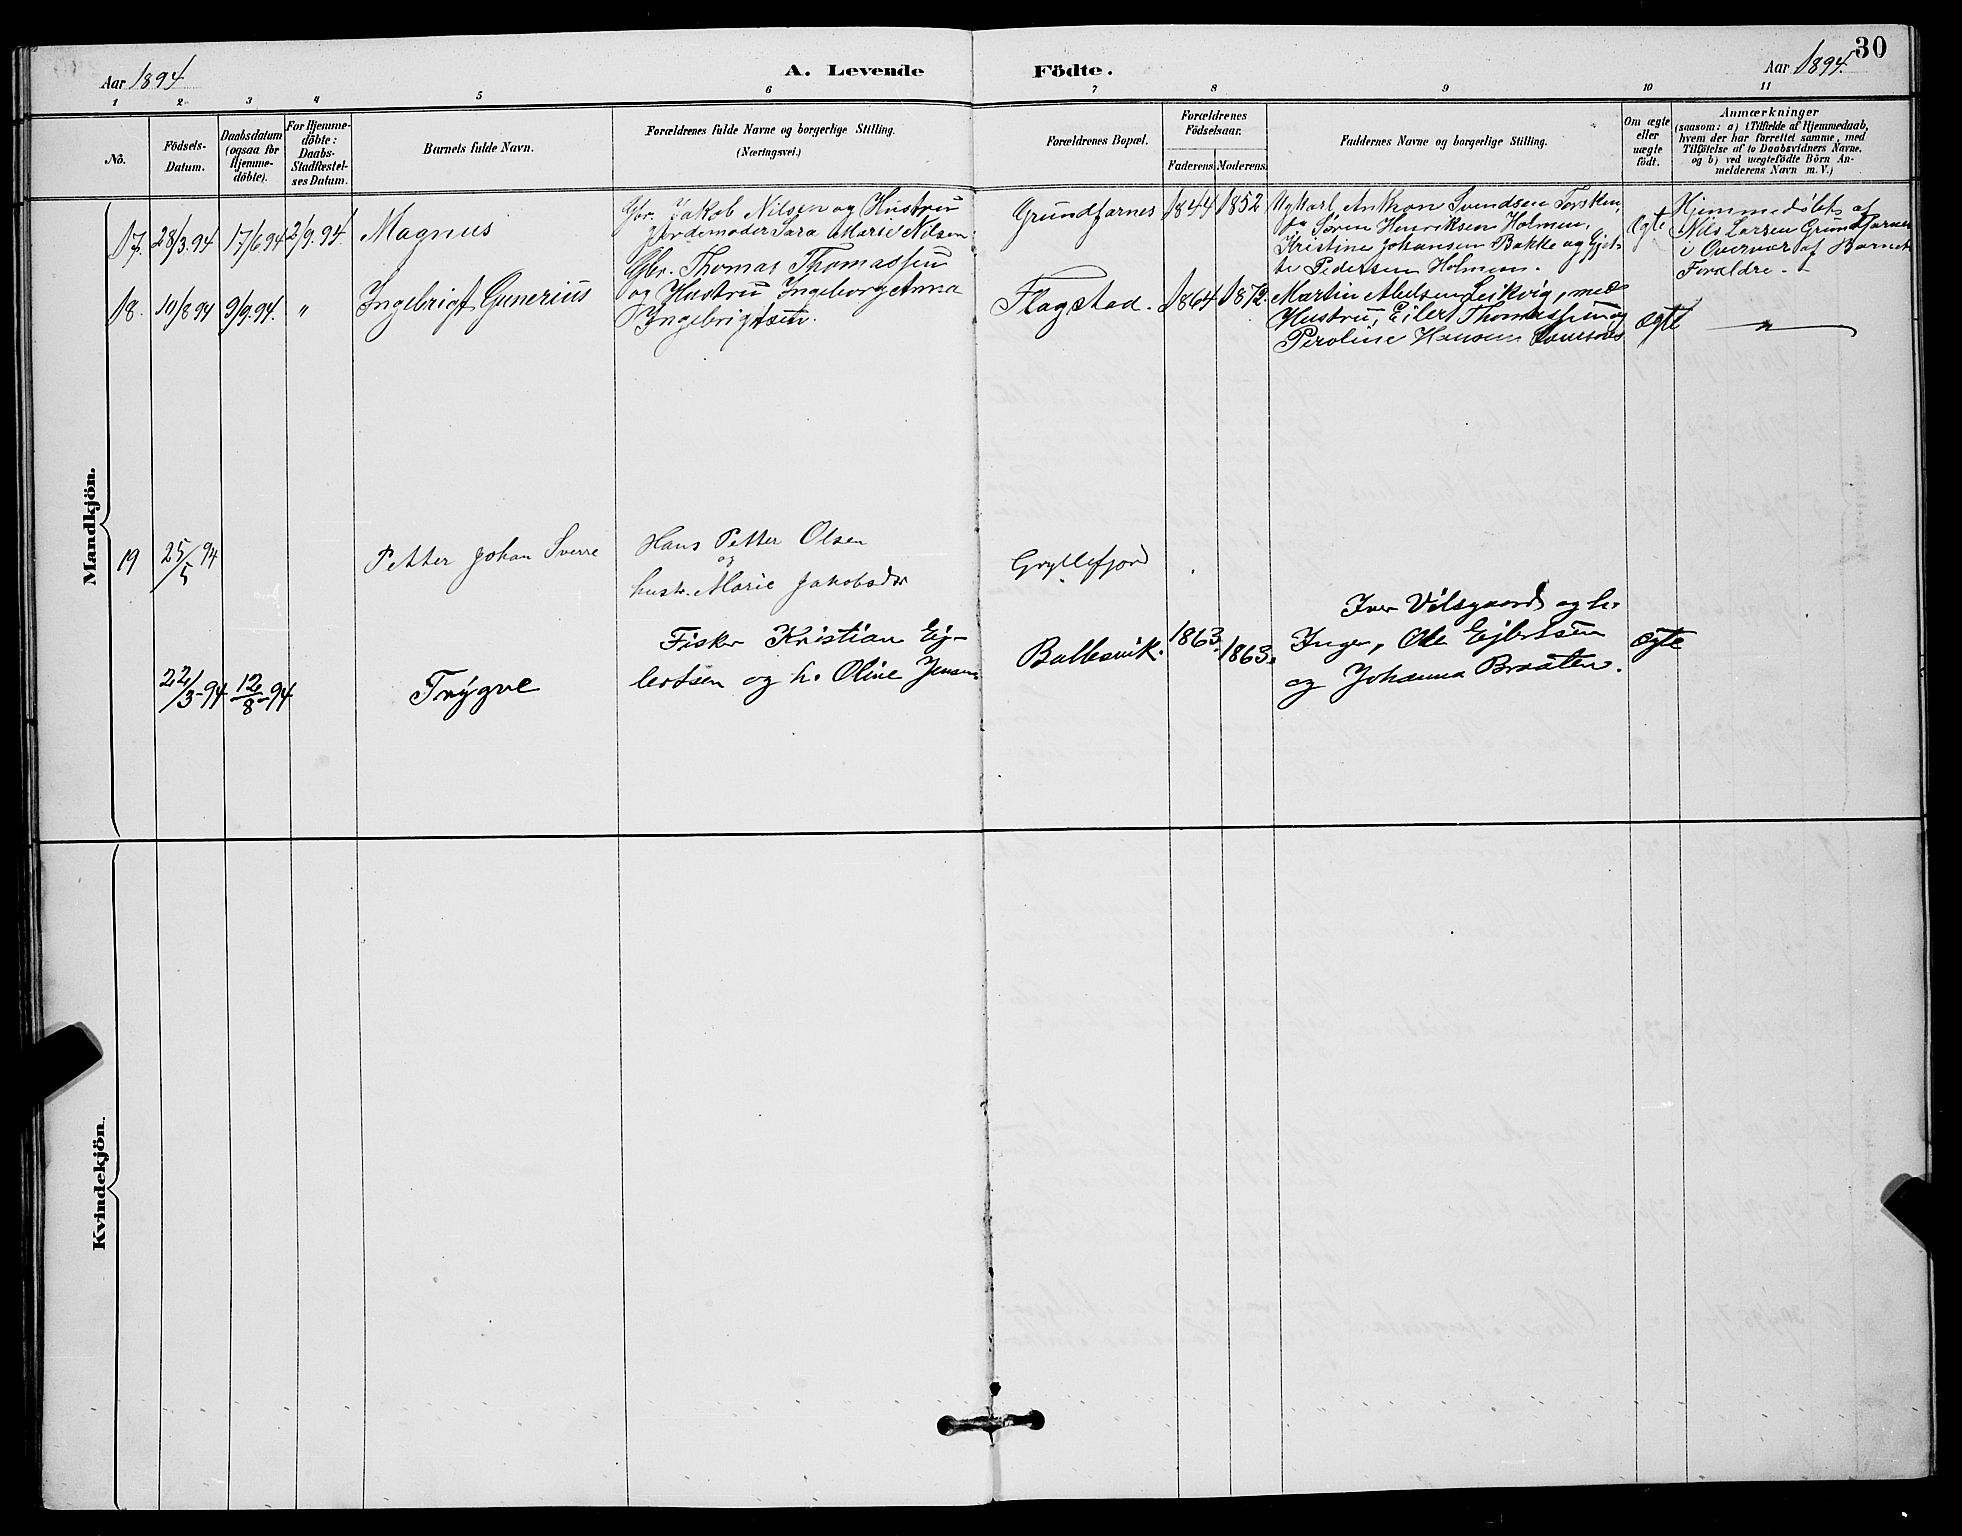 30
Aar 1894
A. Levende Födte.
Aar 1894.
1 2 3 4 5 6 7 8 9 10 11
No.
Födsels-
Datum.
Daabsdatum
(ogsaa for
Hjemme-
döbte).
For Hjemme-
döbte:
Daabs-
Stadfæstel-
ses Datum.
Barnets fulde Navn.
Forældrenes fulde Navne og borgerlige Stilling.
(Næringsvei.)
Forældrenes Bopæl.
Forældrenes
Födselsaar.
Faderens. Moderens.
Faddernes Navne og borgerlige Stilling.
Om ægte
eller
uægte
födt.
Anmærkninger
(saasom: a) i Tilfælde af Hjemmedaab,
hvem der har forrettet samme, med
Tilföielse af to Daabsvidners Navne,
og b) ved uægtefödte Börn An-
melderens Navn m. V.)
Mandkjön.
17. 28/3.94 17/6 94 2/9.94. Magnus
Gbr. Jakob Nilsen og Hustru
Jordemoder Sara Marie Nilsen.
Grundfarnes 1844 1852
Karl Anthon Svendsen Torsken,
Søren Henriksen Holmen,
Kristine Johansen Bakke og Gjet-
te Pedersen Holmen.
Egte
Hjemmedøbt af
Nils Larsen Grundfarnes
i Overvær af Barnets
Forældre.
18. 10/8 94 9/9.94. " Ingebrigt Gunerius
Gbr. Thomas Thomassen
og Hustru Ingeborg Anna
Ingebrigtsen.
Flagstad. 1864 1872.
Martin Abelsen Leikvig, med
Hustru, Eilert Thomassen og
Peroline Hansen
ægte "
19 25/5 94 Petter Johan Sverre
Hans Petter Olsen
og
hustr. Marie Jakobsdr
Gryllefjord
22/3-94 12/8-94 Trygve
Fisker Kristian Ej-
lertsen og h. Oline Jensen
Ballesvik. 1863. 1863.
Iver Vilsgaard og h.
Inger, Ole Ejlertsen
og Johanna Braaten.
ægte
Kvindekjön.